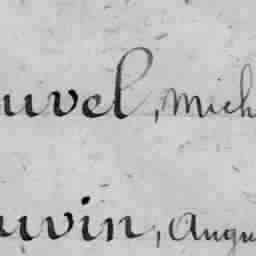 uvel, Mich
uvin, Augu